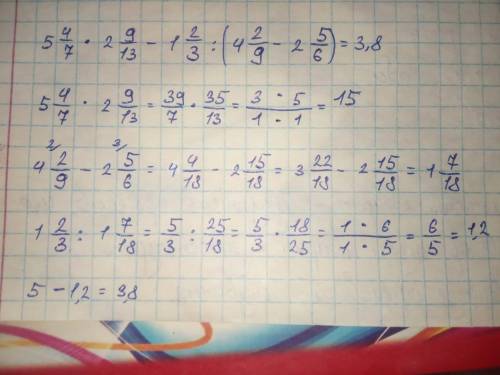 5 4/7 · 2 9/13 − 1 2/3 : (4 2/9 − 2 5/6) = 3,8
5 4/7 · 2 9/13 = 39/7 · 35/13 = (3 · 5)/(1 · 1) = 15
4 2/9 ²⁄ − 2 5/6 ³⁄ = 4 4/18 − 2 15/18 = 3 22/18 − 2 15/18 = 1 7/18
1 2/3 : 1 7/18 = 5/3 : 25/18 = 5/3 · 18/25 = (1 · 6)/(1 · 5) = 6/5 = 1,2
5 − 1,2 = 3,8